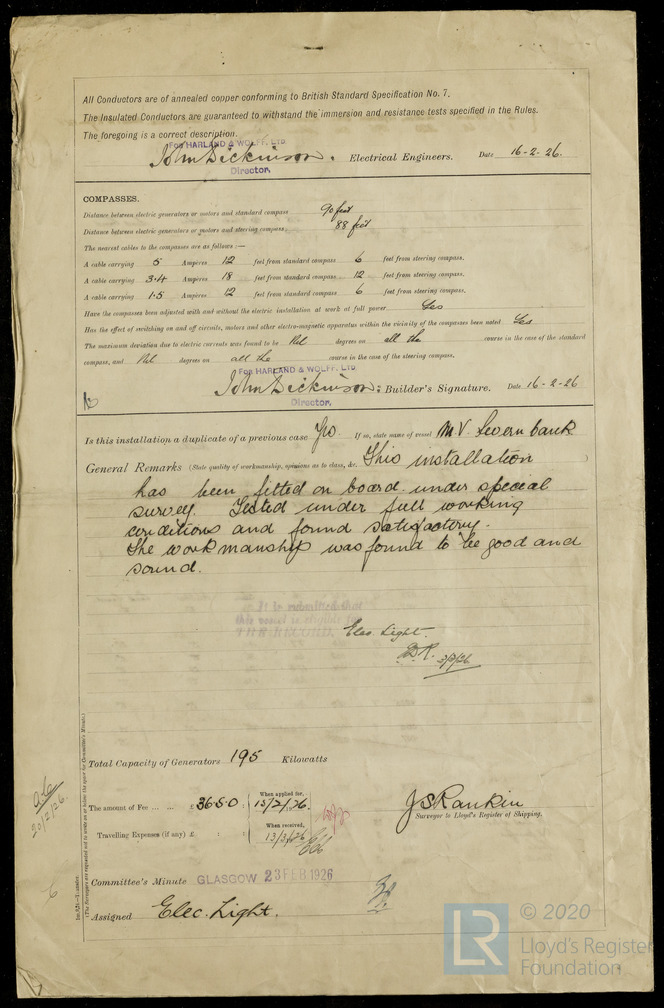 All Conductors are of annealed copper conforming to British Standard Specification No. 7.
The Insulated Conductors are guaranteed to withstand the immersion and resistance tests specified in the Rules.
The foregoing is a correct description.
For HARLAND & WOLFF, LTD.
John Dickinson. Electrical Engineers. Date 16-2-26.
Director.
COMPASSES.
Distance between electric generators or motors and standard compass 90 feet
Distance between electric generators or motors and steering compass. 88 feet
The nearest cables to the compasses are as follows :—
A cable carrying 5 Ampères 12 feet from standard compass 6 feet from steering compass.
A cable carrying 3.4 Ampères 18 feet from standard compass 12 feet from steering compass.
A cable carrying 1.5 Ampères 12 feet from standard compass 6 feet from steering compass.
Have the compasses been adjusted with and without the electric installation at work at full power Yes
Has the effect of switching on and off circuits, motors and other electro-magnetic apparatus within the vicinity of the compasses been noted Yes
The maximum deviation due to electric currents was found to be Nil degrees on all the course in the case of the standard
compass, and Nil degrees on all the course in the case of the steering compass.
For HARLAND & WOLFF, LTD
John Dickinson. Builder's Signature. Date 16-2-26
Director.
Is this installation a duplicate of a previous case Yes If so, state name of vessel M.V. Severn bank
General Remarks (State quality of workmanship, opinions as to class, &c. This installation
has been fitted on board under special
survey. Tested under full working
conditions and found satisfactory.
The workmanship was found to be good and
sound.
It is submitted that
this vessel is eligible for
THE RECORD. Elec. Light.
3/3/26
Total Capacity of Generators 195 Kilowatts
The amount of Fee ... ... £ 36.5.0 : When applied for, 15/2/1926.
J S Rankin
Surveyor to Lloyd's Register of Shipping.
Travelling Expenses (if any) £ : : When received, 13/3/1926
Committee's Minute GLASGOW 23 FEB 1926
Assigned Elec. Light.
© 2020
LR Lloyd's Register
Foundation